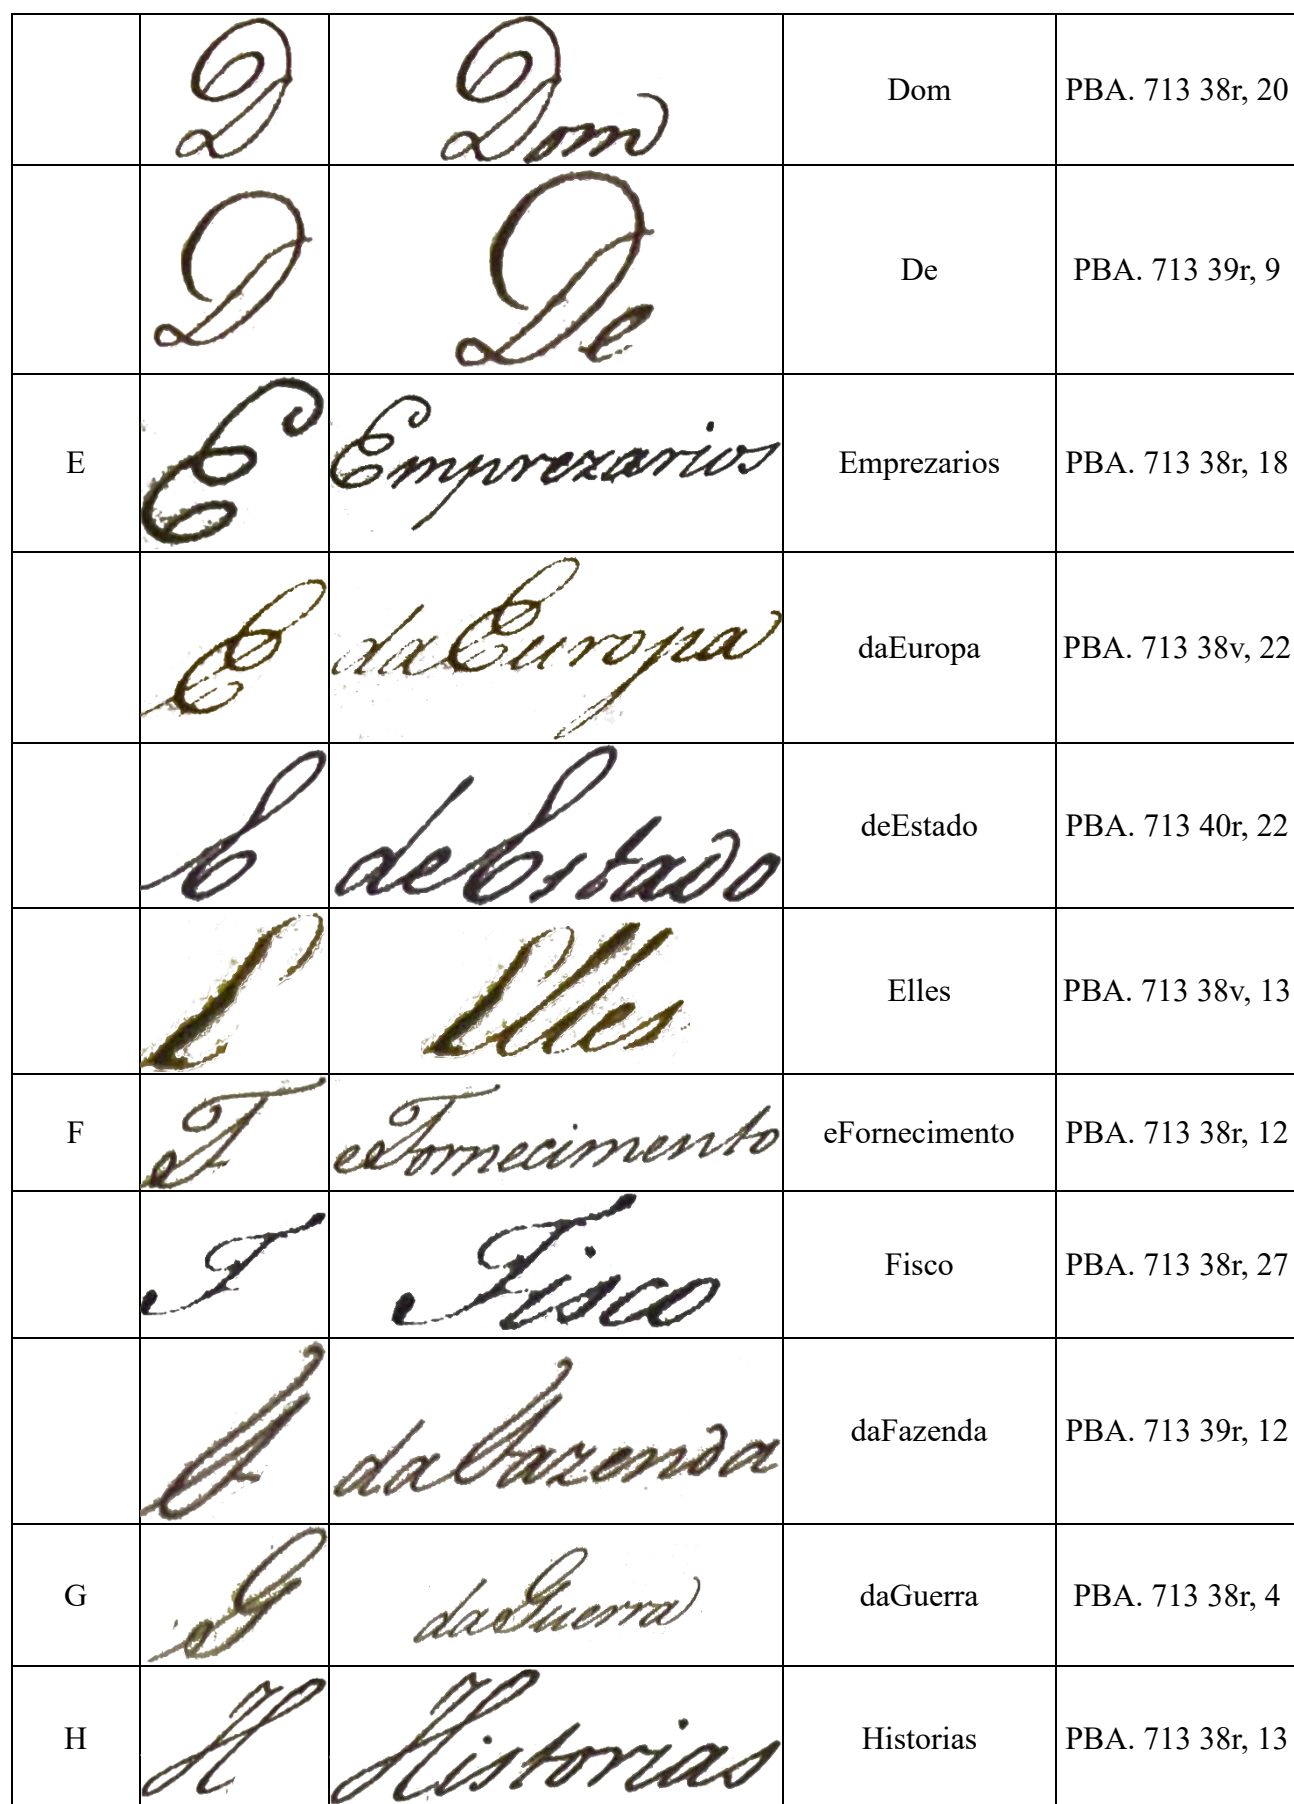 D Dom Dom PBA. 713 38r, 20
D De De PBA. 713 39r, 9
E E Emprezarios Emprezarios PBA. 713 38r, 18
E daEuropa daEuropa PBA. 713 38v, 22
E deEstado deEstado PBA. 713 40r, 22
E Elles Elles PBA. 713 38v, 13
F F eFornecimento eFornecimento PBA. 713 38r, 12
F Fisco Fisco PBA. 713 38r, 27
F daFazenda daFazenda PBA. 713 39r, 12
G G daGuerra daGuerra PBA. 713 38r, 4
H H Historias Historias PBA. 713 38r, 13